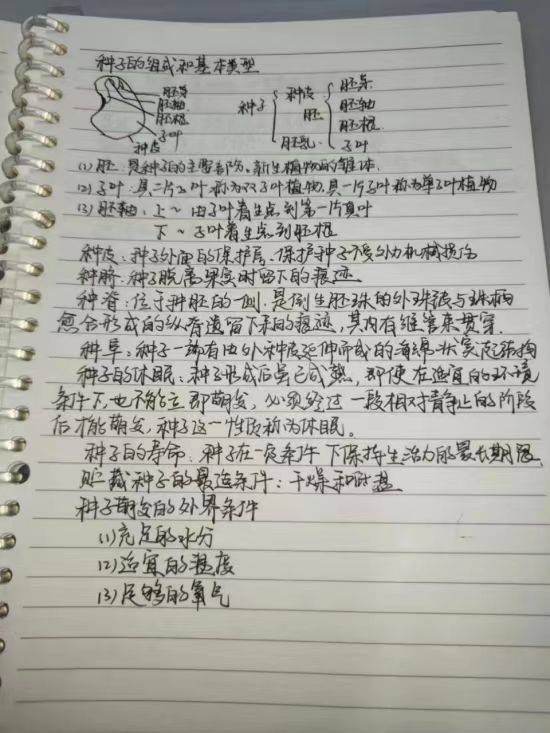 种子的组成和基本类型
胚芽
胚轴
胚根
子叶
种皮
种子
种皮
胚
胚乳
胚芽
胚轴
胚根
子叶
(1) 胚:是种子的主要部份,新生植物的雏体.
(2) 子叶:具二片子叶称为双子叶植物,具一片子叶称为单子叶植物
(3) 胚轴:上~由子叶着生点到第一片真叶
下~子叶着生点到胚根
种皮:种子外面的保护层,保护种子不受外力机械损伤
种脐:种子脱离果实时留下的痕迹
种脊:位于种脐的一侧,是倒生胚珠的外珠被与珠柄
愈合形成的纵脊遗留下来的痕迹,其内有维管束贯穿.
种阜:种子一端有由外种皮延伸而成的海绵状突起结构
种子的休眠:种子形成后虽已成熟,即使在适宜的环境
条件下,也不能立即萌发,必须经过一段相对静止的阶段
后才能萌发,种子这一性质称为休眠。
种子的寿命:种子在一定条件下保持生活力的最长期限.
贮藏种子的最适条件:干燥和低温
种子萌发的外界条件
(1)充足的水分
(2)适宜的温度
(3)足够的氧气